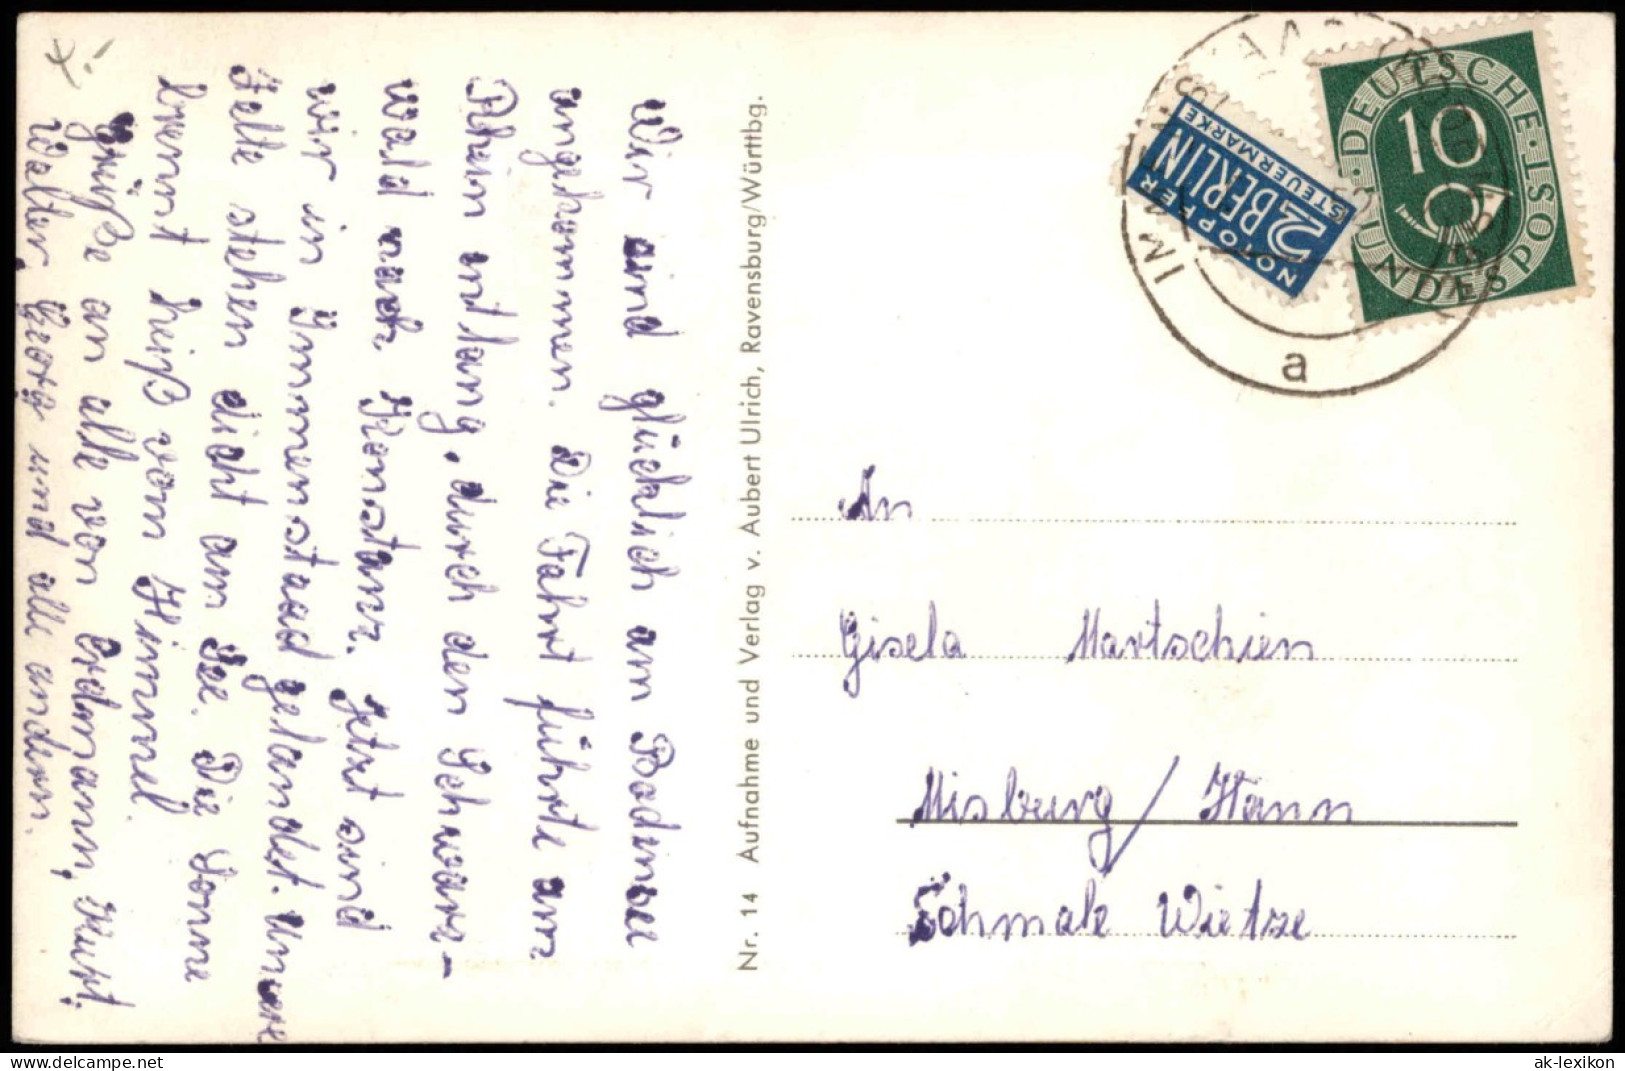 Wir sind glücklich am Bodensee
angekommen. Die Fahrt führte am
Rhein entlang, durch den Schwarz-
wald nach Konstanz. Jetzt sind
wir in Immenstaad gelandet. Unsere
Zelte stehen dicht am See. Die Sonne
brennt heiß vom Himmel.
Grüße an alle von Erdmann, Kurt,
Walter, Georg und alle andern.
Nr. 14 Aufnahme und Verlag v. Aubert Ulrich, Ravensburg/Württbg.
NOTOPFER
2 BERLIN
STEUERMARKE
DEUTSCHE BUNDESPOST
10
IMMENSTAAD
a
An
Gisela Martschien
Misburg/Hann
Schmale Wietze
www.ansichtskarten-lexikon.de
ak-lexikon